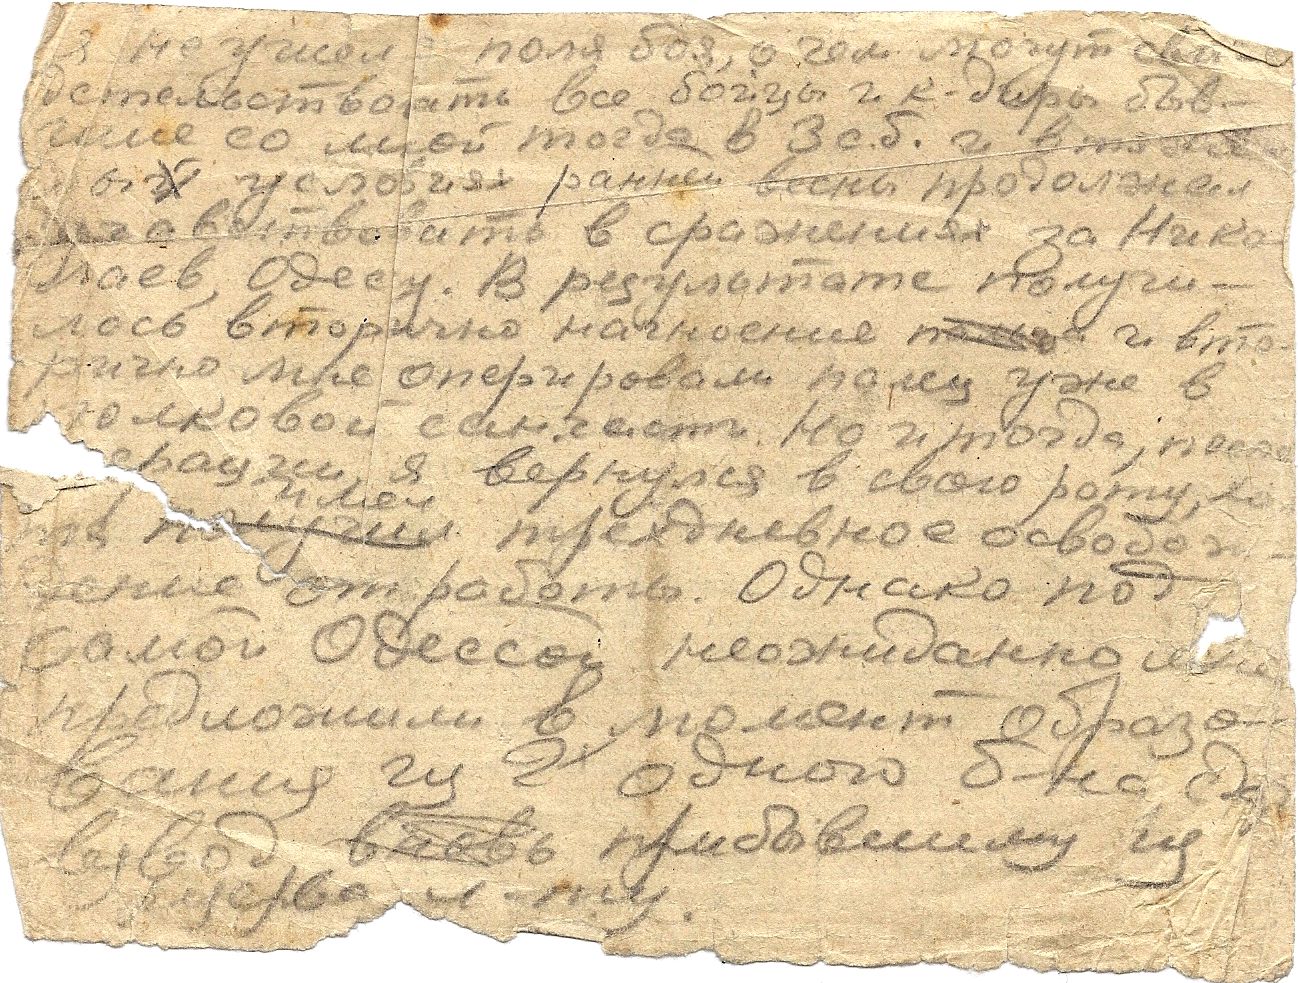 я не ушел с поля боя, о чем могут сви-
детельствовать все бойцы и к-диры быв-
шие со мной тогда в 3 с.б. и в тяже-
лых условиях ранней весны продолжал
участвовать в сражениях за Нико-
лаев, Одесу. В результате получи-
лось вторично нагноение и вто-
рично мне оперировали палец уже в
полковой санчасти. Но и тогда, после
операции я вернулся в свою роту, хо-
тя имел трехдневное освобож-
дение от работы. Однако под
самой Одессой неожиданно мне
предложили в момент образо-
вания из 2х одного б-на сдать
взвод прибывшему из
резерва л-нту.